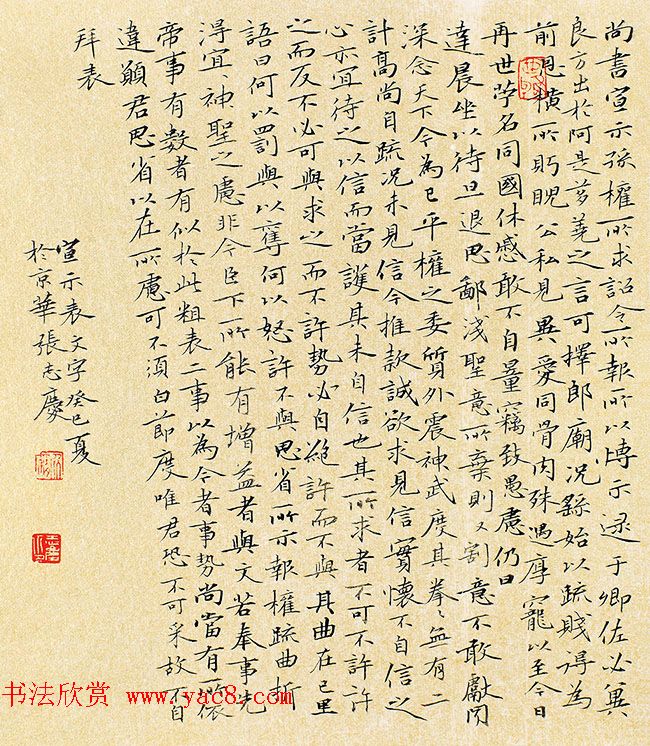 尚書宣示孫權所求詔令所報所以博示逮于卿佐必冀
良方出於阿是芻蕘之言可擇郎廟況繇始以疏賤得為
前恩橫所眄睨公私見異愛同骨肉殊遇厚寵以至今日
再世荣名同國休慼敢不自量竊致愚慮仍日
達晨坐以待旦退思鄙淺聖意所棄則又割意不敢獻聞
深念天下今為已平權之委質外震神武度其拳拳無有二
計高尚自疏況未見信今推款誠欲求見信實懷不自信之
心亦宜待之以信而當護其未自信也其所求者不可不許許
之而反不必可與求之而不許勢必自絕許而不與其曲在己里
語曰何以罰與以奪何以怒許不與思省所示報權疏曲折
得宜宜神聖之慮非今臣下所能有增益者與文若奉事先
帝事有數者有似於此粗表二事以為今者事勢尚當有所依
違願君思省以在所慮可不須白節度唯君恐不可采故不自
拜表
宣示表文字癸巳夏
於京華張志慶
书法欣赏 www.yac8.com